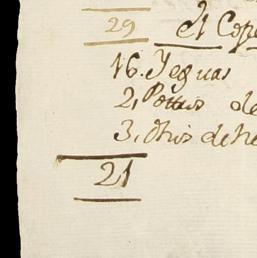 29 el Cope
16. Yeguas
2, Potros de
3, Otros de he
21